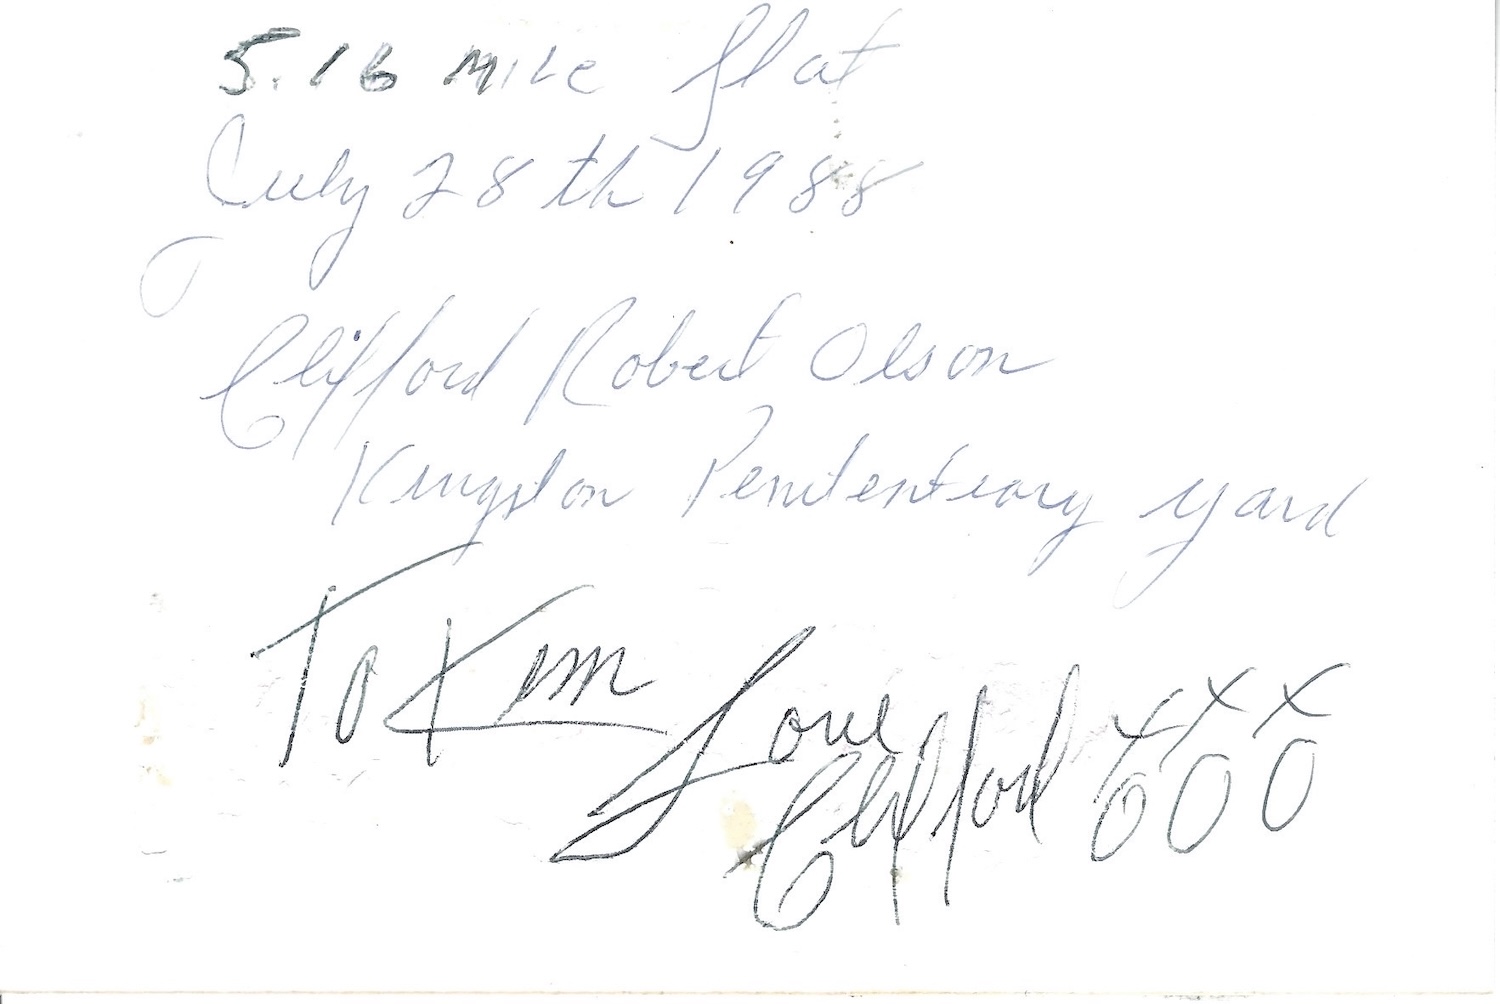 5.16 Mile flat
July 28th 1988
Clifford Robert Olson
Kingston Penitentiary yard
To Kim
Love
Clifford XXX
OOO